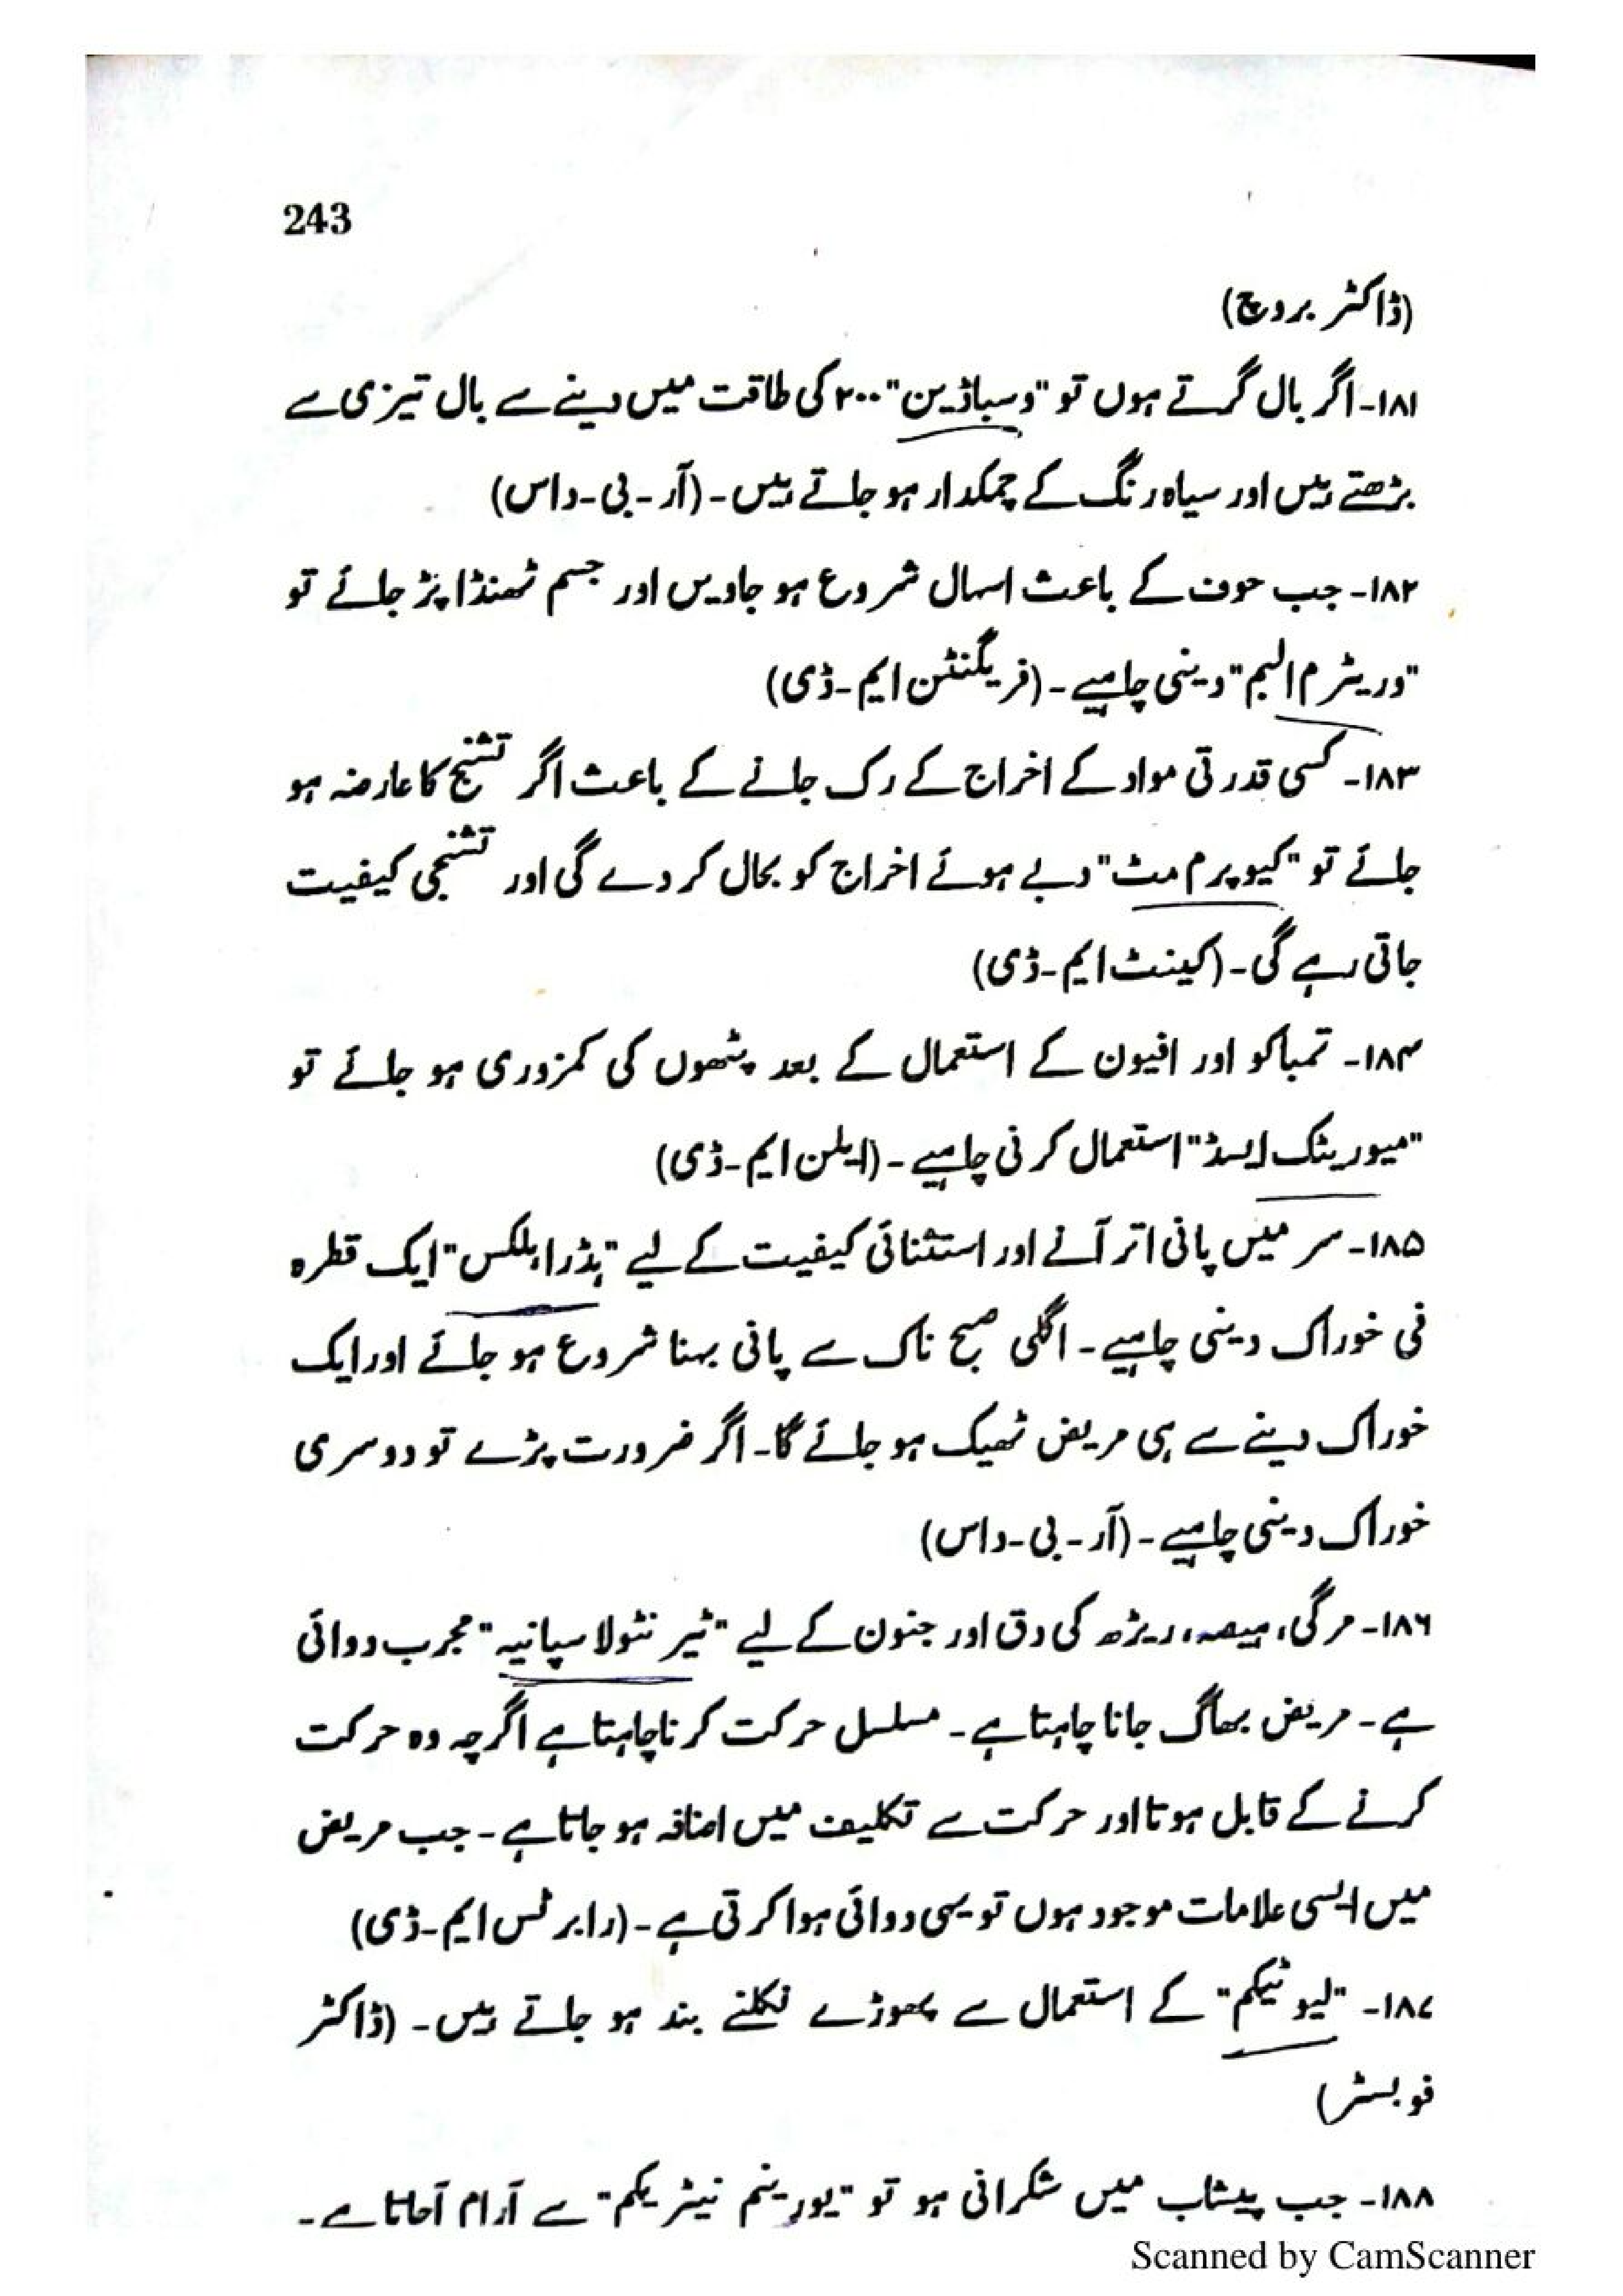 243
(ڈاکٹر بروچ)
۱۸۱- اگر بال گرتے ہوں تو "وسباڈین" ۲۰۰ کی طاقت میں دینے سے بال تیزی سے
بڑھتے ہیں اور سیاہ رنگ کے چمکدار ہو جاتے ہیں۔ (آر-بی-داس)
۱۸۲- جب خوف کے باعث اسہال شروع ہو جاویں اور جسم ٹھنڈا پڑ جائے تو
"وریٹرم البم" دینی چاہیے۔ (فریگنٹن ایم-ڈی)
۱۸۳- کسی قدرتی مواد کے اخراج کے رک جانے کے باعث اگر تشنج کا عارضہ ہو
جائے تو "کیوپرم مٹ" دبے ہوئے اخراج کو بحال کر دے گی اور تشنجی کیفیت
جاتی رہے گی۔ (کینٹ ایم-ڈی)
۱۸۴- تمباکو اور افیون کے استعمال کے بعد پٹھوں کی کمزوری ہو جائے تو
"میوریٹک ایسڈ" استعمال کرنی چاہیے۔ (ایلن ایم-ڈی)
۱۸۵- سر میں پانی اتر آنے اور استثنائی کیفیت کے لیے "ہڈرا یلکس" ایک قطرہ
فی خوراک دینی چاہیے۔ اگلی صبح ناک سے پانی بہنا شروع ہو جائے اور ایک
خوراک دینے سے ہی مریض ٹھیک ہو جائے گا۔ اگر ضرورت پڑے تو دوسری
خوراک دینی چاہیے۔ (آر-بی-داس)
۱۸۶- مرگی، ہیضہ، ریڑھ کی دق اور جنون کے لیے "ٹیرنٹولا سپانیہ" مجرب دوائی
ہے۔ مریض بھاگ جانا چاہتا ہے۔ مسلسل حرکت کرنا چاہتا ہے اگرچہ وہ حرکت
کرنے کے قابل ہوتا اور حرکت سے تکلیف میں اضافہ ہو جاتا ہے۔ جب مریض
میں ایسی علامات موجود ہوں تو یہی دوائی ہوا کرتی ہے۔ (رابرٹس ایم-ڈی)
۱۸۷- "لیوٹیکم" کے استعمال سے پھوڑے نکلنے بند ہو جاتے ہیں۔ (ڈاکٹر
فوبسٹر)
۱۸۸- جب پیشاب میں شکر آنی ہو تو "یورینم نیٹریکم" سے آرام آجاتا ہے۔
Scanned by CamScanner